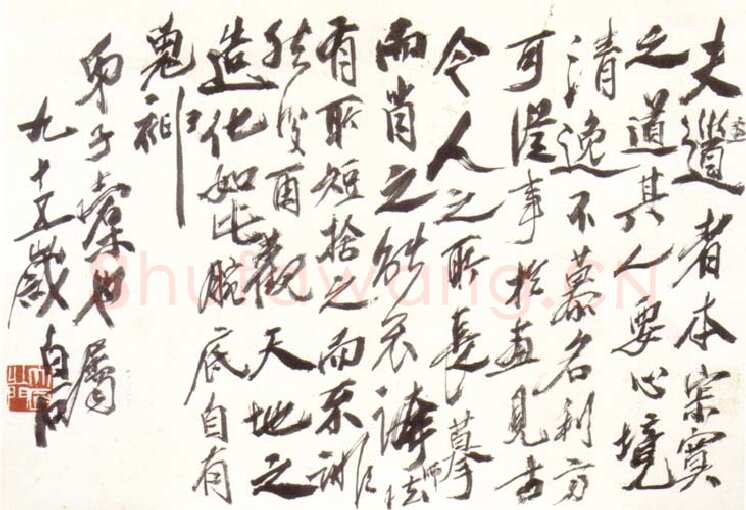 夫畫道者本寂寞
之道其人要心境
清逸不慕名利方
可從事於畫見古
今人之所長摹
而肖之能不誇師法
有所短捨之而不誹
然後再觀天地之
造化如此腕底自有
鬼神
弟子屬
九十五歲白石
Shufawang.CN